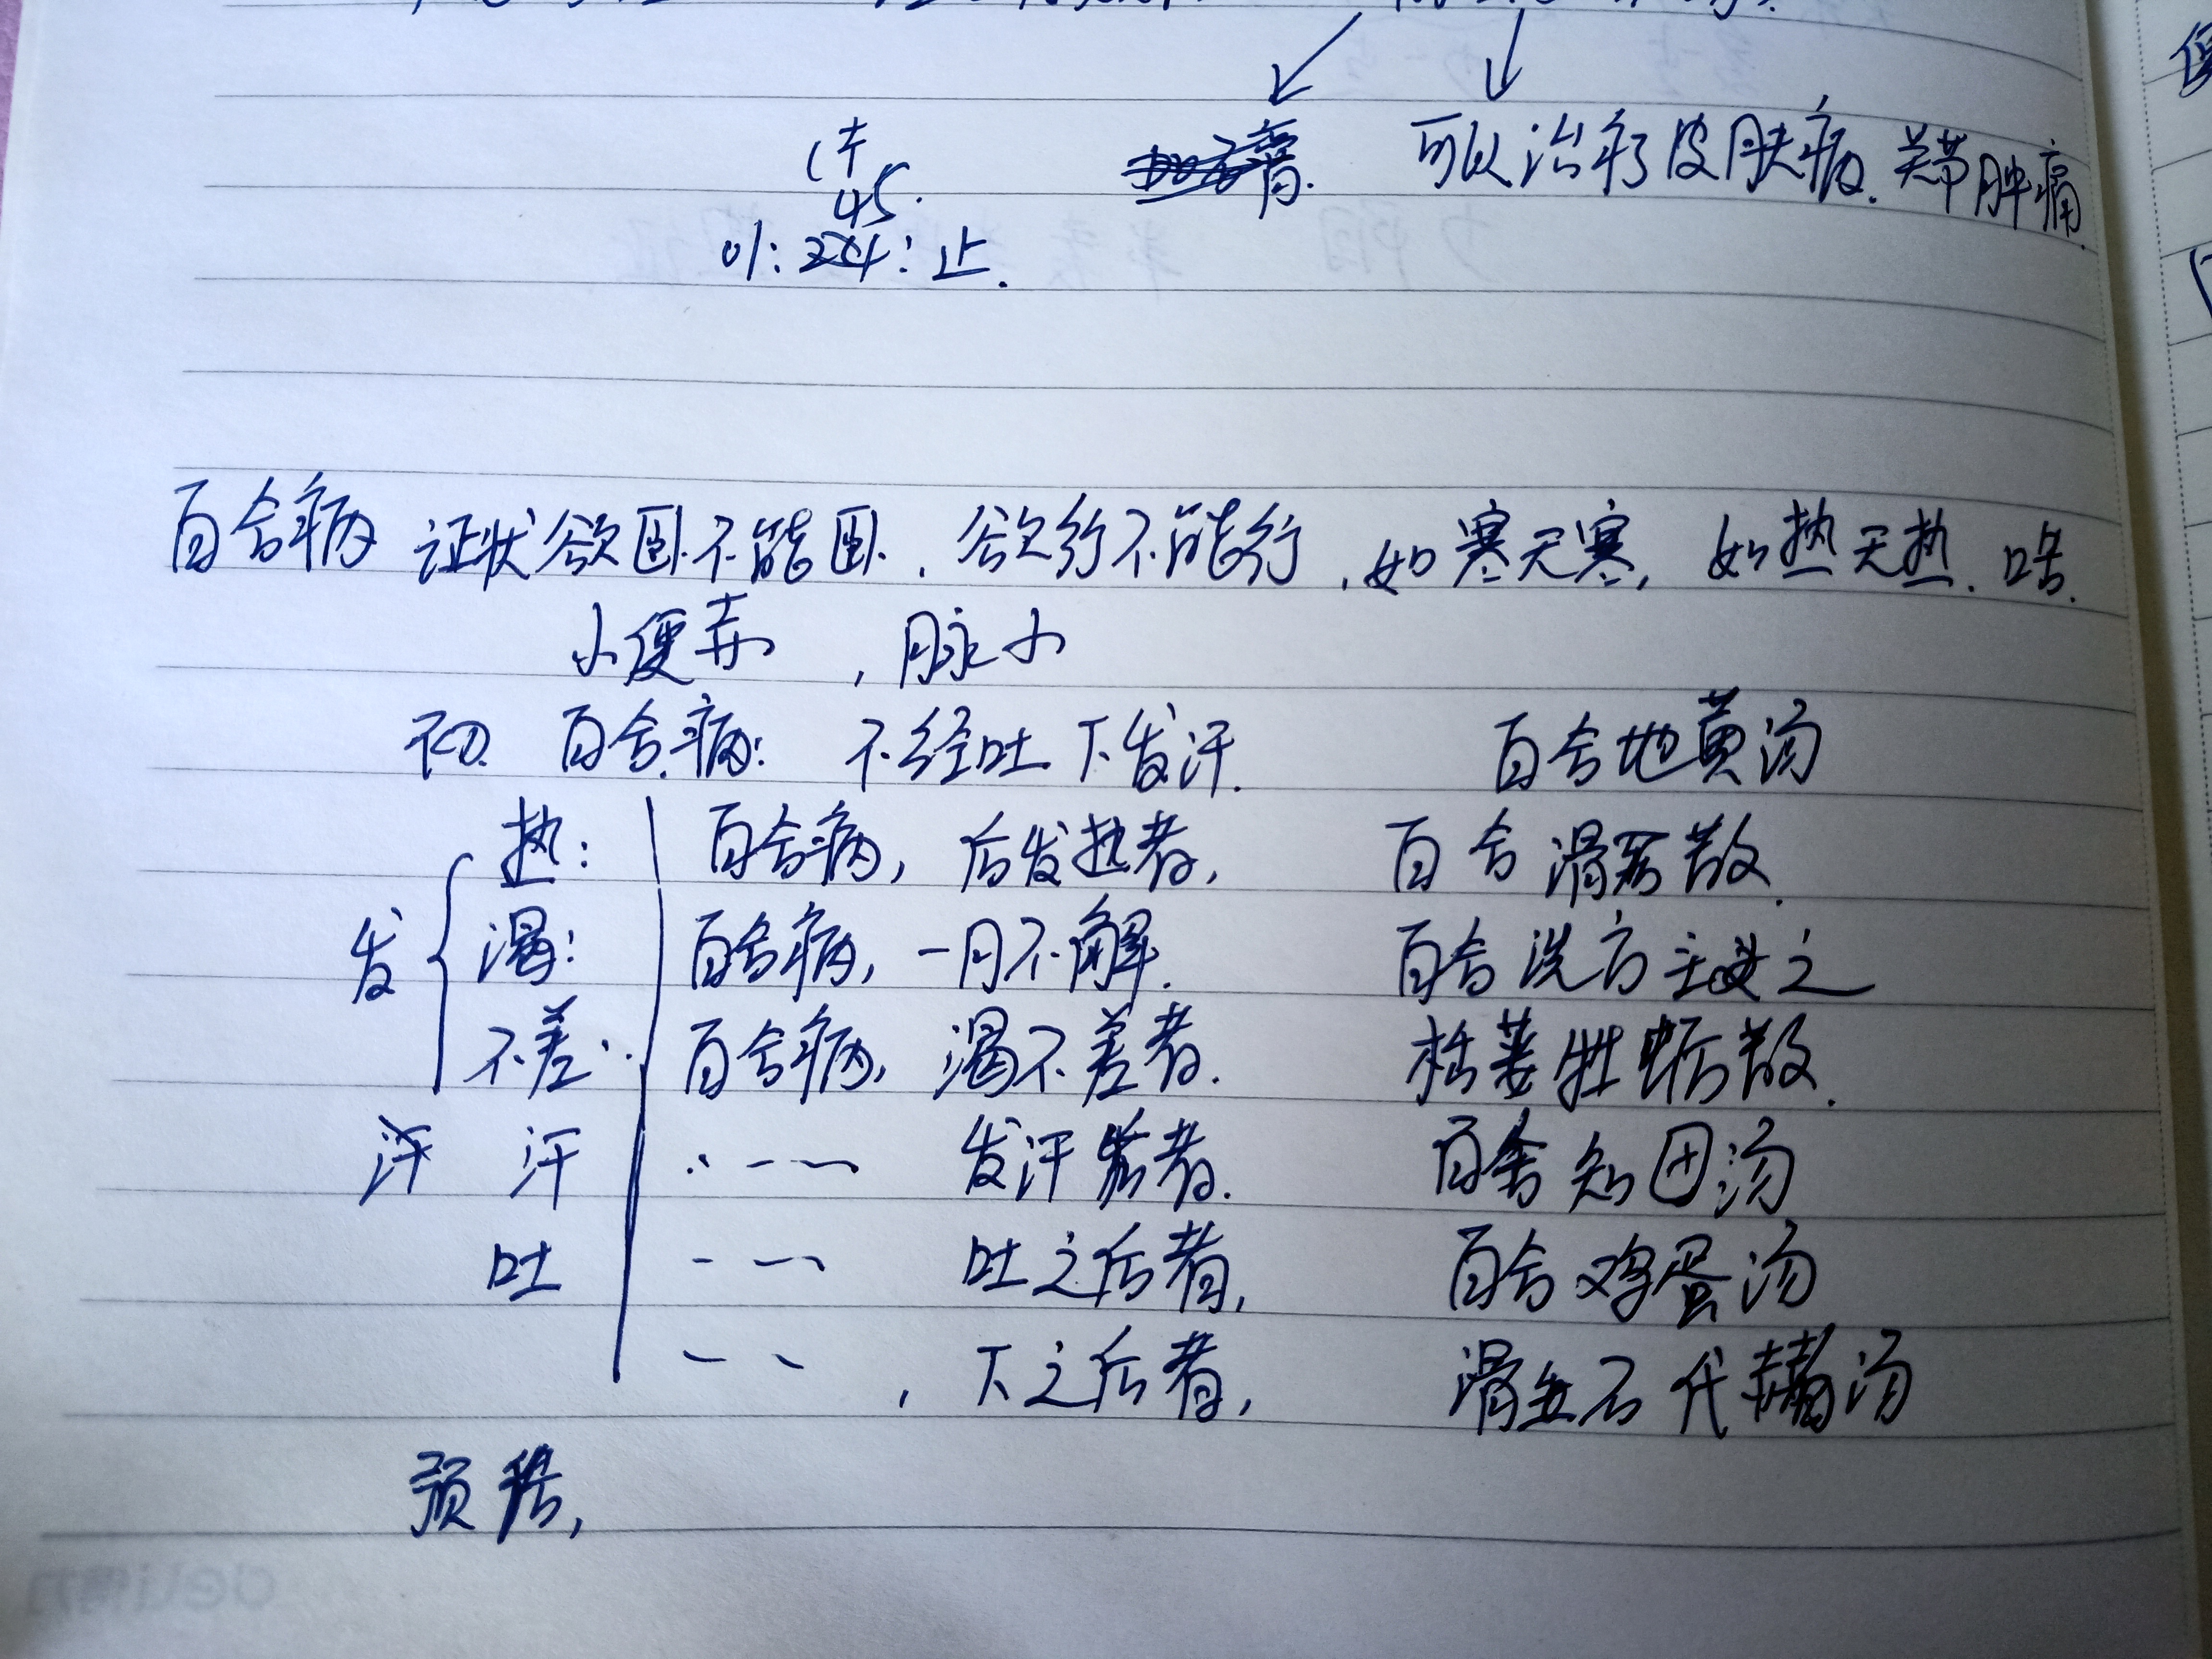 可以治疗皮肤病. 关节肿痛.
45.
01:24:止.
百合病 证状欲卧不能卧, 欲行不能行, 如寒无寒, 如热无热. 口苦.
小便赤, 脉小
初 百合病: 不经吐下发汗. 百合地黄汤
热: 百合病, 后发热者, 百合滑石散.
发 渴: 百合病, 一月不解. 百合洗方主之
不差: 百合病, 渴不差者. 栝蒌牡蛎散.
汗 发汗后者. 百合知母汤
吐 吐之后者, 百合鸡蛋汤
, 下之后者, 滑石代赭汤
预后,